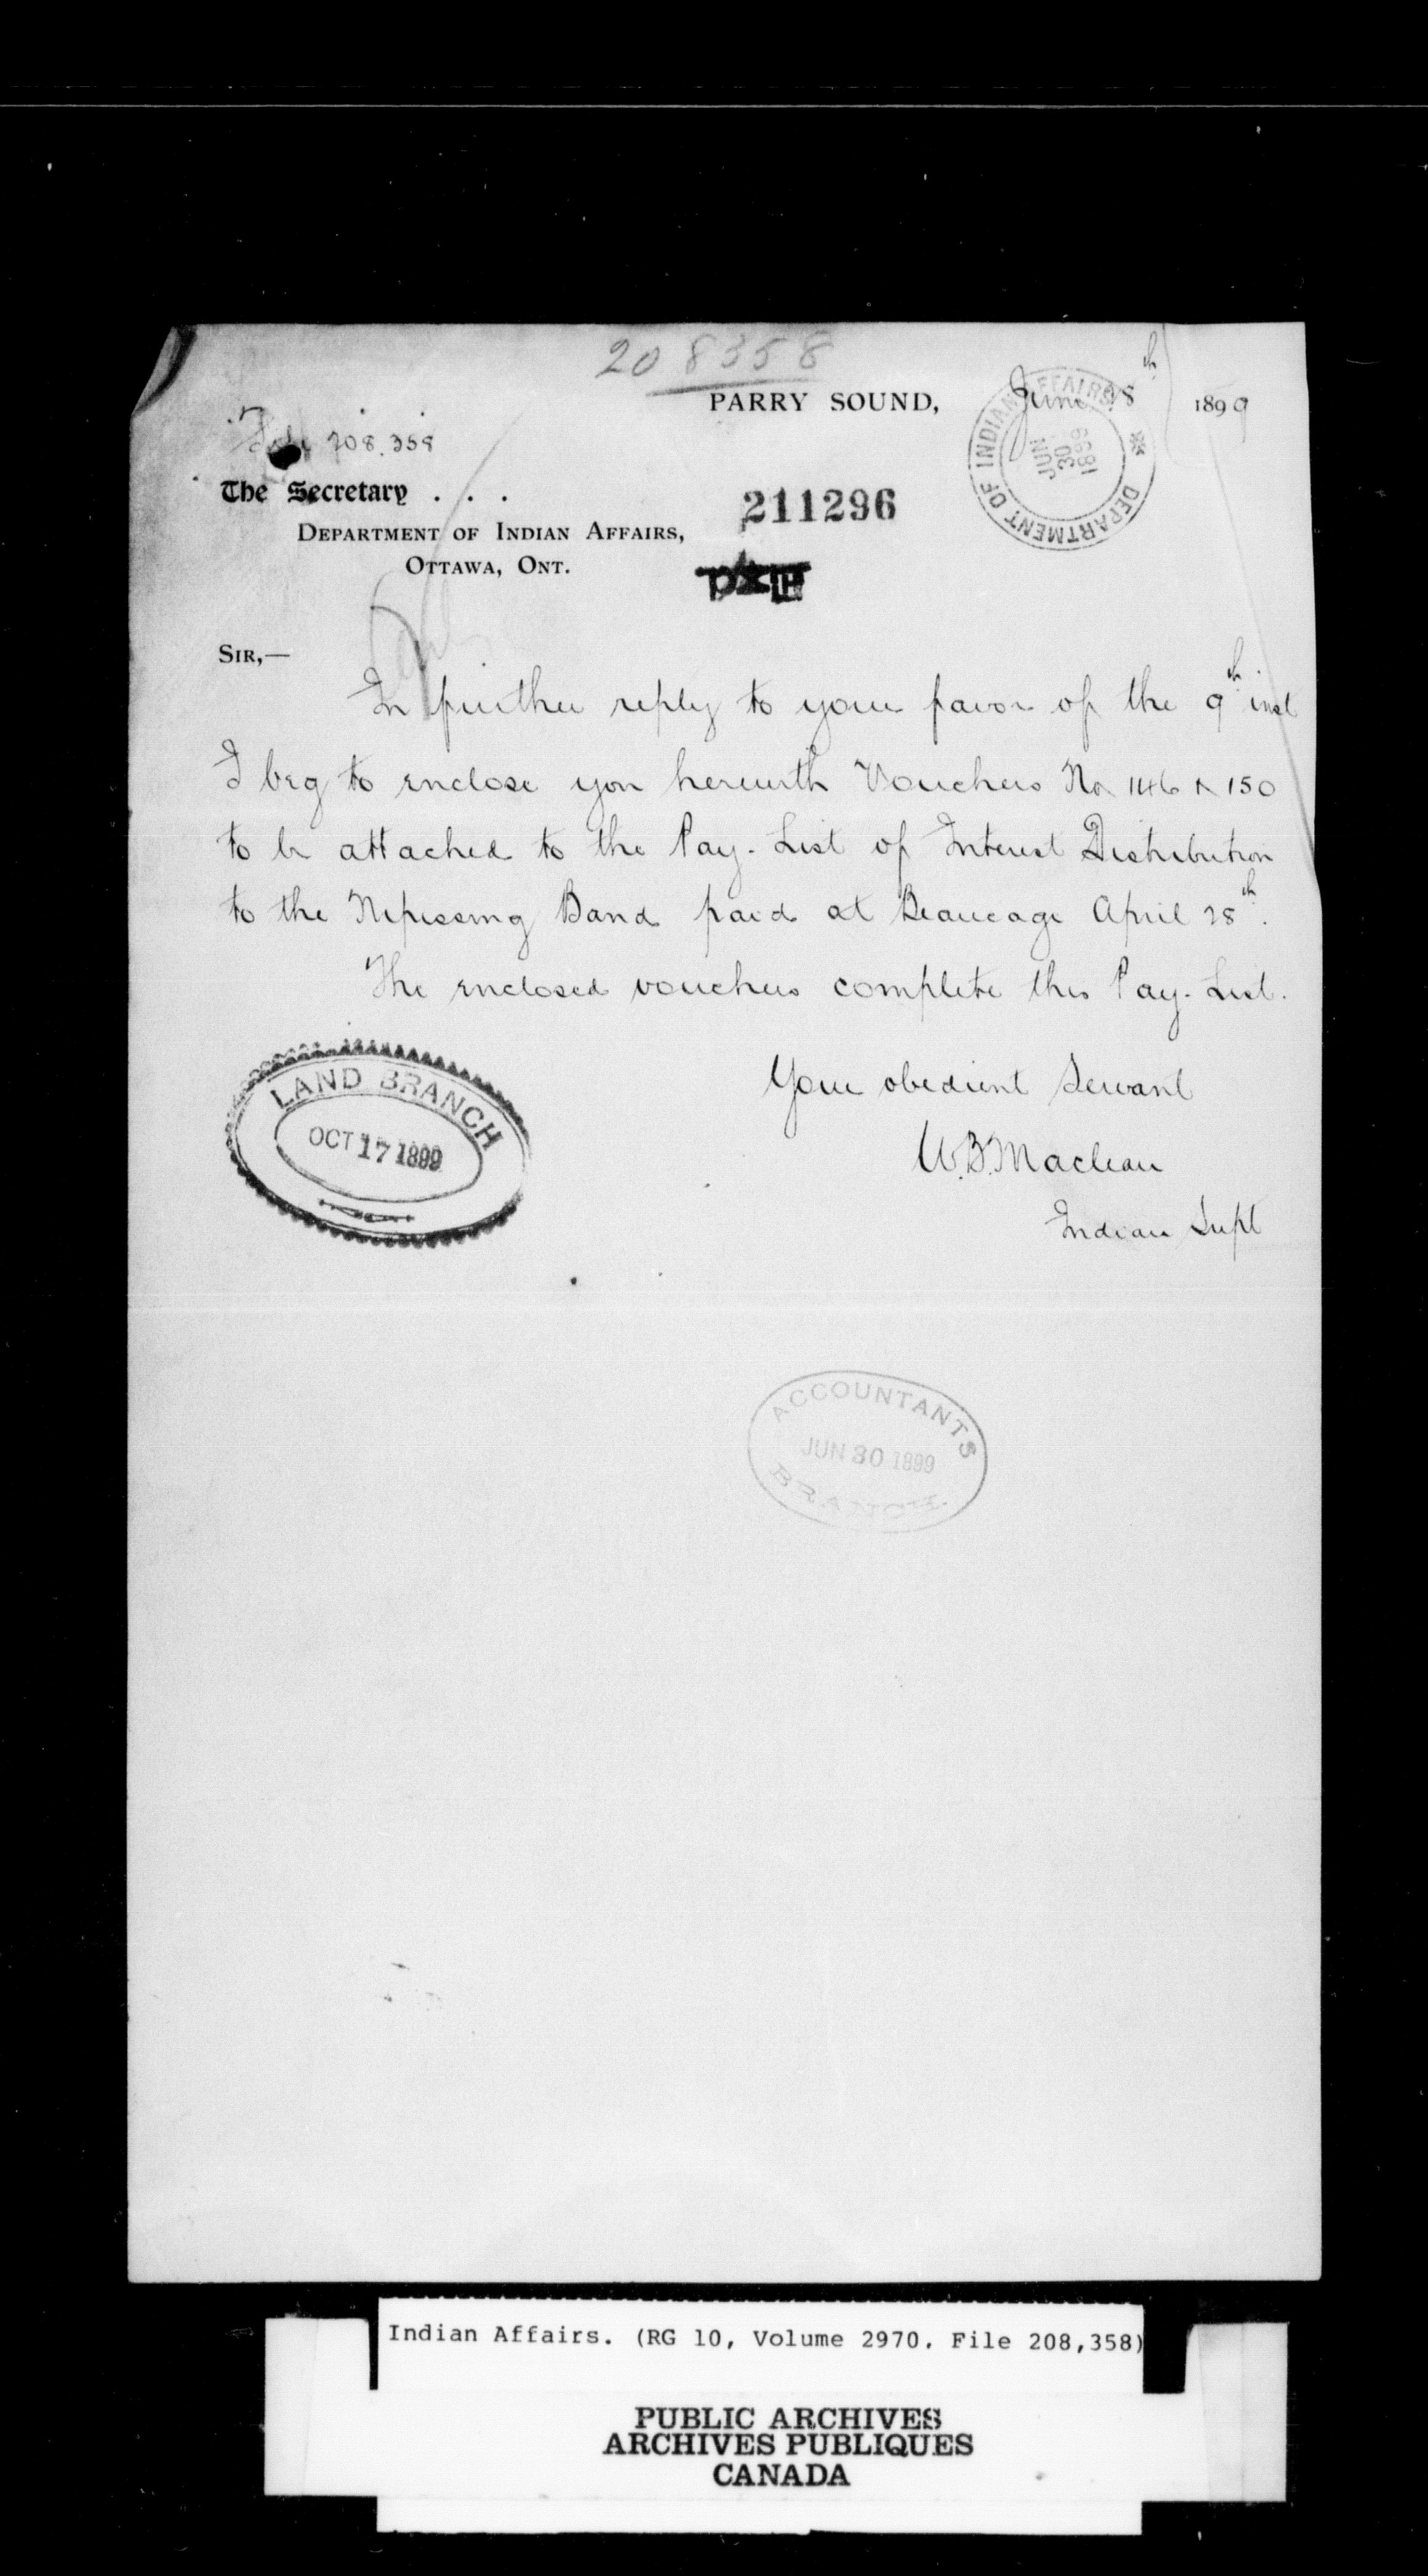 208358
PARRY SOUND, June 28th 1899
DEPARTMENT OF INDIAN AFFAIRS
JUN 30 1899
File 208.358
The Secretary . . .
211296
DEPARTMENT OF INDIAN AFFAIRS,
OTTAWA, ONT.
SIR,—
In further reply to your favor of the 9th inst
I beg to enclose you herewith Vouchers No 146 & 150
to be attached to the Pay-List of Interest Distribution
to the Nipissing Band paid at Beaucage April 28th.
The enclosed vouchers complete this Pay-List.
Your obedient Servant
W.B. Maclean
Indian Supt
LAND BRANCH
OCT 17 1899
ACCOUNTANTS
JUN 30 1899
BRANCH
Indian Affairs. (RG 10, Volume 2970, File 208,358)
PUBLIC ARCHIVES
ARCHIVES PUBLIQUES
CANADA